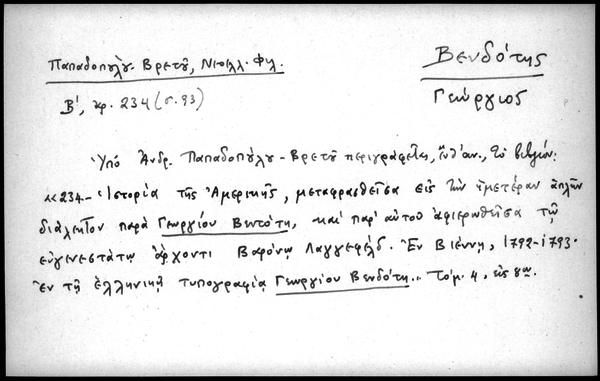 Παπαδοπούλου-Βρετοῦ, Νεοελλ. Φιλ.
Βενδότης
Β', ἀρ. 234 (σ. 93)
Γεώργιος
Ὑπό Ἀνδρ. Παπαδοπούλου-Βρετοῦ περιγράφεται, ἔνθ' ἀν., τό βιβλίον:
«234.- Ἱστορία τῆς Ἀμερικῆς, μεταφρασθεῖσα εἰς τήν ἡμετέραν ἁπλῆν
διάλεκτον παρά Γεωργίου Βεντότη, καί παρ' αὐτοῦ ἀφιερωθεῖσα τῷ
εὐγενεστάτῳ ἄρχοντι Βαρόνῳ Λαγγεφέλδ. Ἐν Βιέννῃ, 1792-1793.
Ἐν τῇ ἑλληνικῇ τυπογραφίᾳ Γεωργίου Βενδότη.. Τόμ. 4, εἰς 8ον.